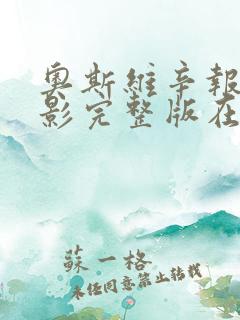 奥斯維辛報
影完整版在
蘇一格
未经同意禁止转载